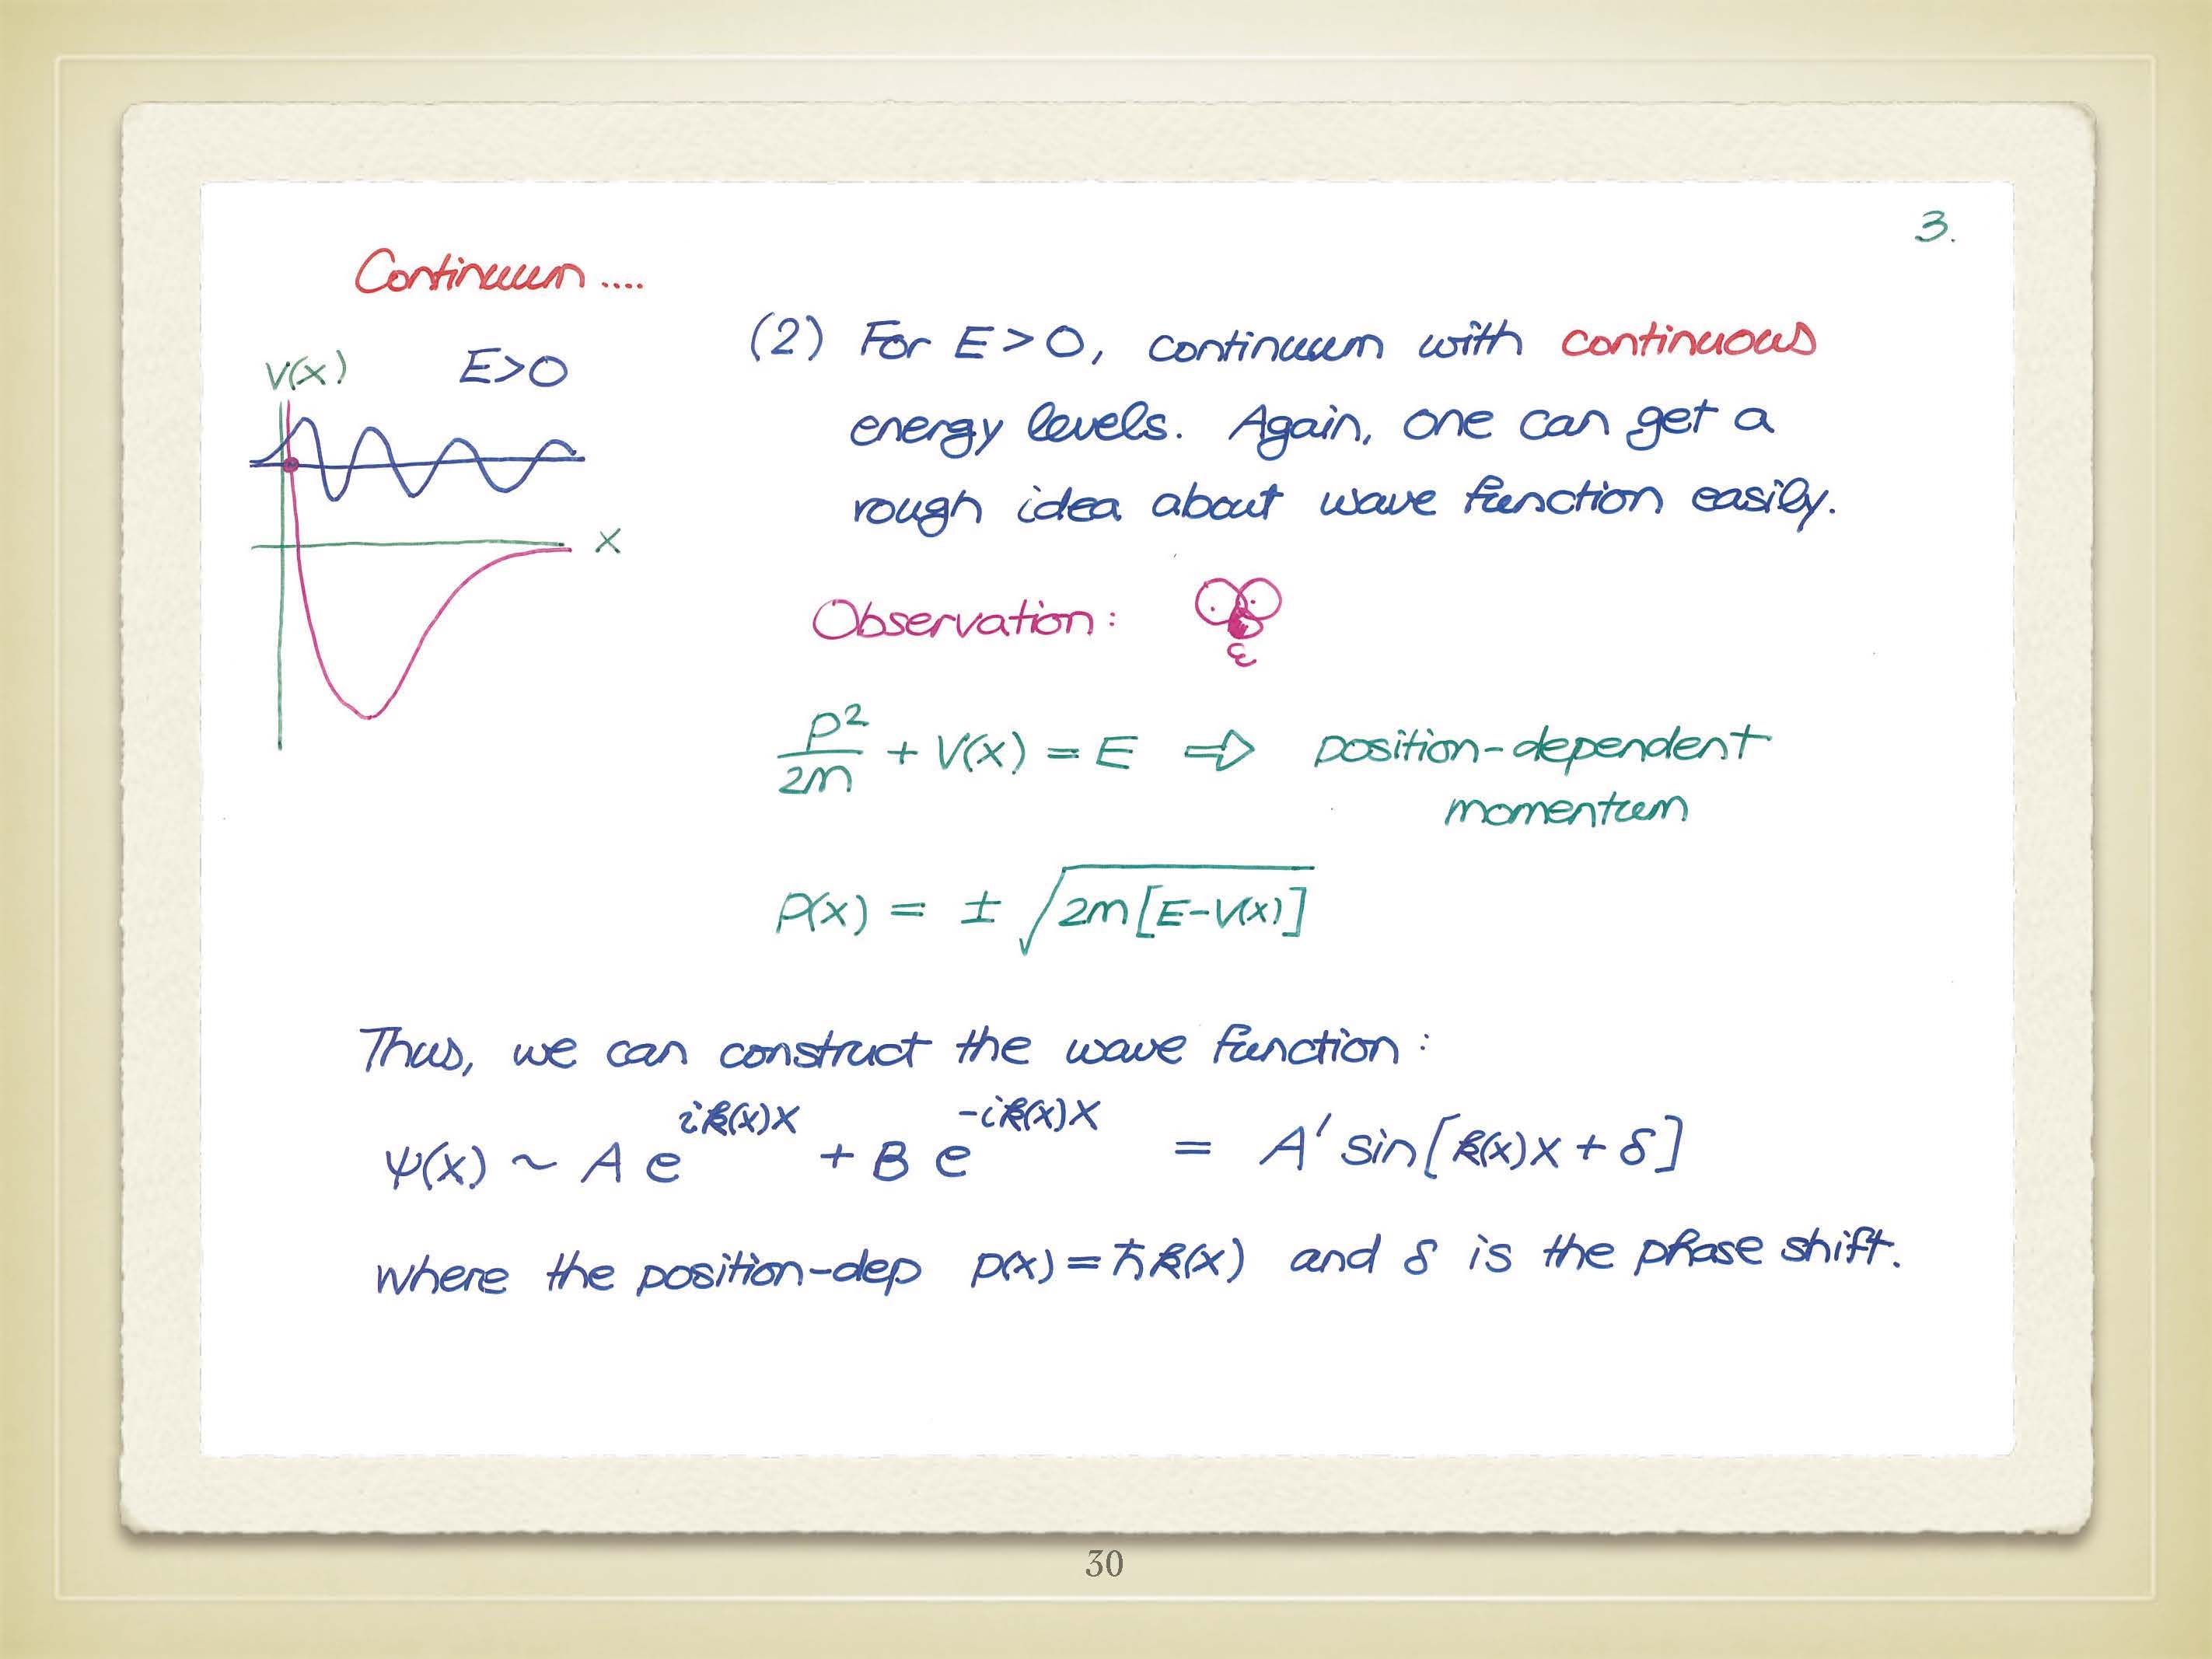 3.
Continuum ....
V(x)
E>0
x
(2) For E > 0, continuum with continuous
energy levels. Again, one can get a
rough idea about wave function easily.
Observation:
p²/2m + V(x) = E ⇒ position-dependent
momentum
p(x) = ± √2m[E-V(x)]
Thus, we can construct the wave function:
ψ(x) ~ A e^{ik(x)x} + B e^{-ik(x)x} = A' sin[k(x)x + δ]
where the position-dep p(x) = ħk(x) and δ is the phase shift.
30